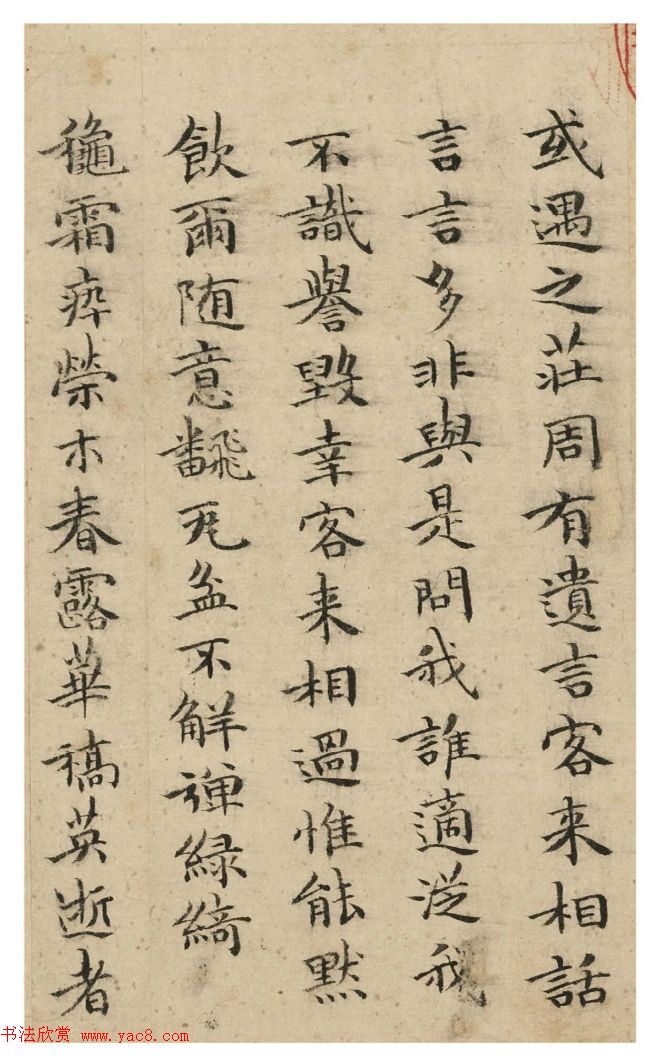 或遇之莊周有遺言客来相話
言言多非與是問我誰適従我
不識譽毀幸客来相過惟能默
飲爾随意飜瓦盆不解弹緑綺
龝霜瘁榮木春露華稿英逝者
书法欣赏 www.yac8.com